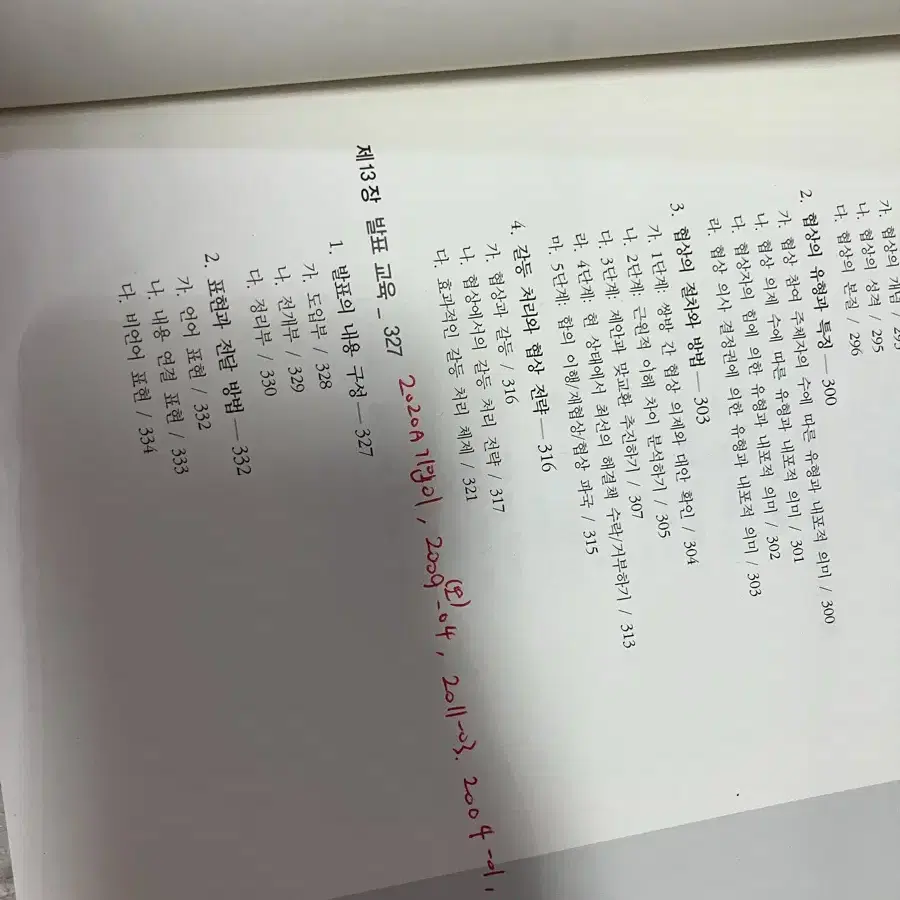 가. 협상의 개념 / 295
나. 협상의 성격 / 295
다. 협상의 본질 / 296
2. 협상의 유형과 특징 — 300
가. 협상 참여 주체자의 수에 따른 유형과 내포적 의미 / 300
나. 협상 의제 수에 따른 유형과 내포적 의미 / 301
다. 협상자의 힘에 의한 유형과 내포적 의미 / 302
라. 협상 의사 결정권에 의한 유형과 내포적 의미 / 303
3. 협상의 절차와 방법 — 303
가. 1단계: 쌍방 간 협상 의제와 대안 확인 / 304
나. 2단계: 근원적 이해 차이 분석하기 / 305
다. 3단계: 제안과 맞교환 추진하기 / 307
라. 4단계: 현 상태에서 최선의 해결책 수락/거부하기 / 313
마. 5단계: 합의 이행/재협상/협상 파국 / 315
4. 갈등 처리와 협상 전략 — 316
가. 협상과 갈등 / 316
나. 협상에서의 갈등 처리 전략 / 317
다. 효과적인 갈등 처리 체제 / 321
제13장 발표 교육 _ 327 2020A기입이, 2009(오)-04, 2011-03. 2004-01,
1. 발표의 내용 구성 — 327
가. 도입부 / 328
나. 전개부 / 329
다. 정리부 / 330
2. 표현과 전달 방법 — 332
가. 언어 표현 / 332
나. 내용 연결 표현 / 333
다. 비언어 표현 / 334